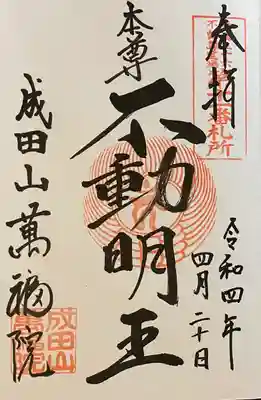 奉拝
番札所
本尊
不動明王
令和四年
四月二十日
成田山萬福院
成田山
萬福院